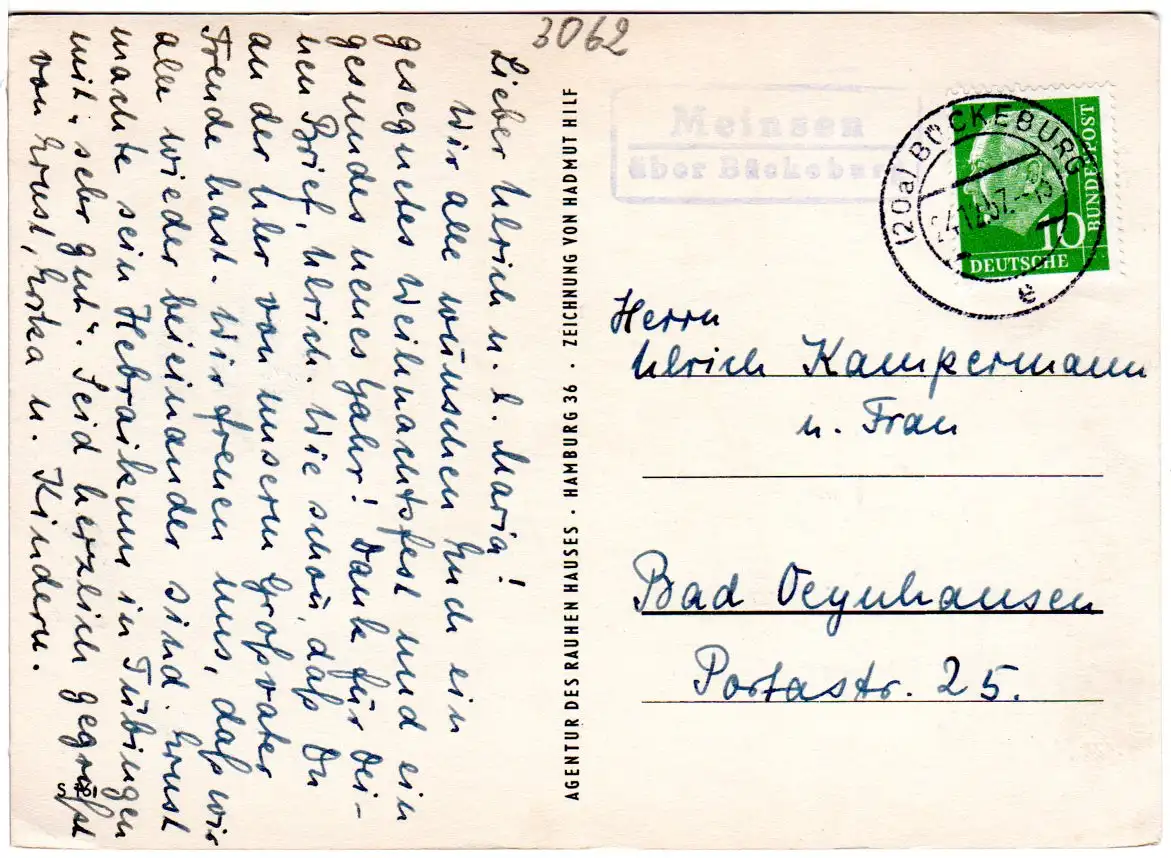 3062
Lieber Ulrich u. l. Maria!
Wir alle wünschen Euch ein
gesegnetes Weihnachtsfest und ein
gesundes neues Jahr! Dank für Dei-
nen Brief, Ulrich. Wie schön, daß Du
an der Uhr von unserm Großvater
Freude hast. Wir freuen uns, daß wir
alle wieder beieinander sind. Ernst
machte sein Hebraikum in Tübingen
mit „sehr gut“. Seid herzlich gegrüßt
von Ernst, Erika u. Kindern.
S 761
AGENTUR DES RAUHEN HAUSES · HAMBURG 36 · ZEICHNUNG VON HADMUT HILF
Meinsen
über Bückeburg
(20a) BÜCKEBURG
e
10
DEUTSCHE
BUNDESPOST
Herrn
Ulrich Kampermann
u. Frau
Bad Oeynhausen
Portastr. 25.